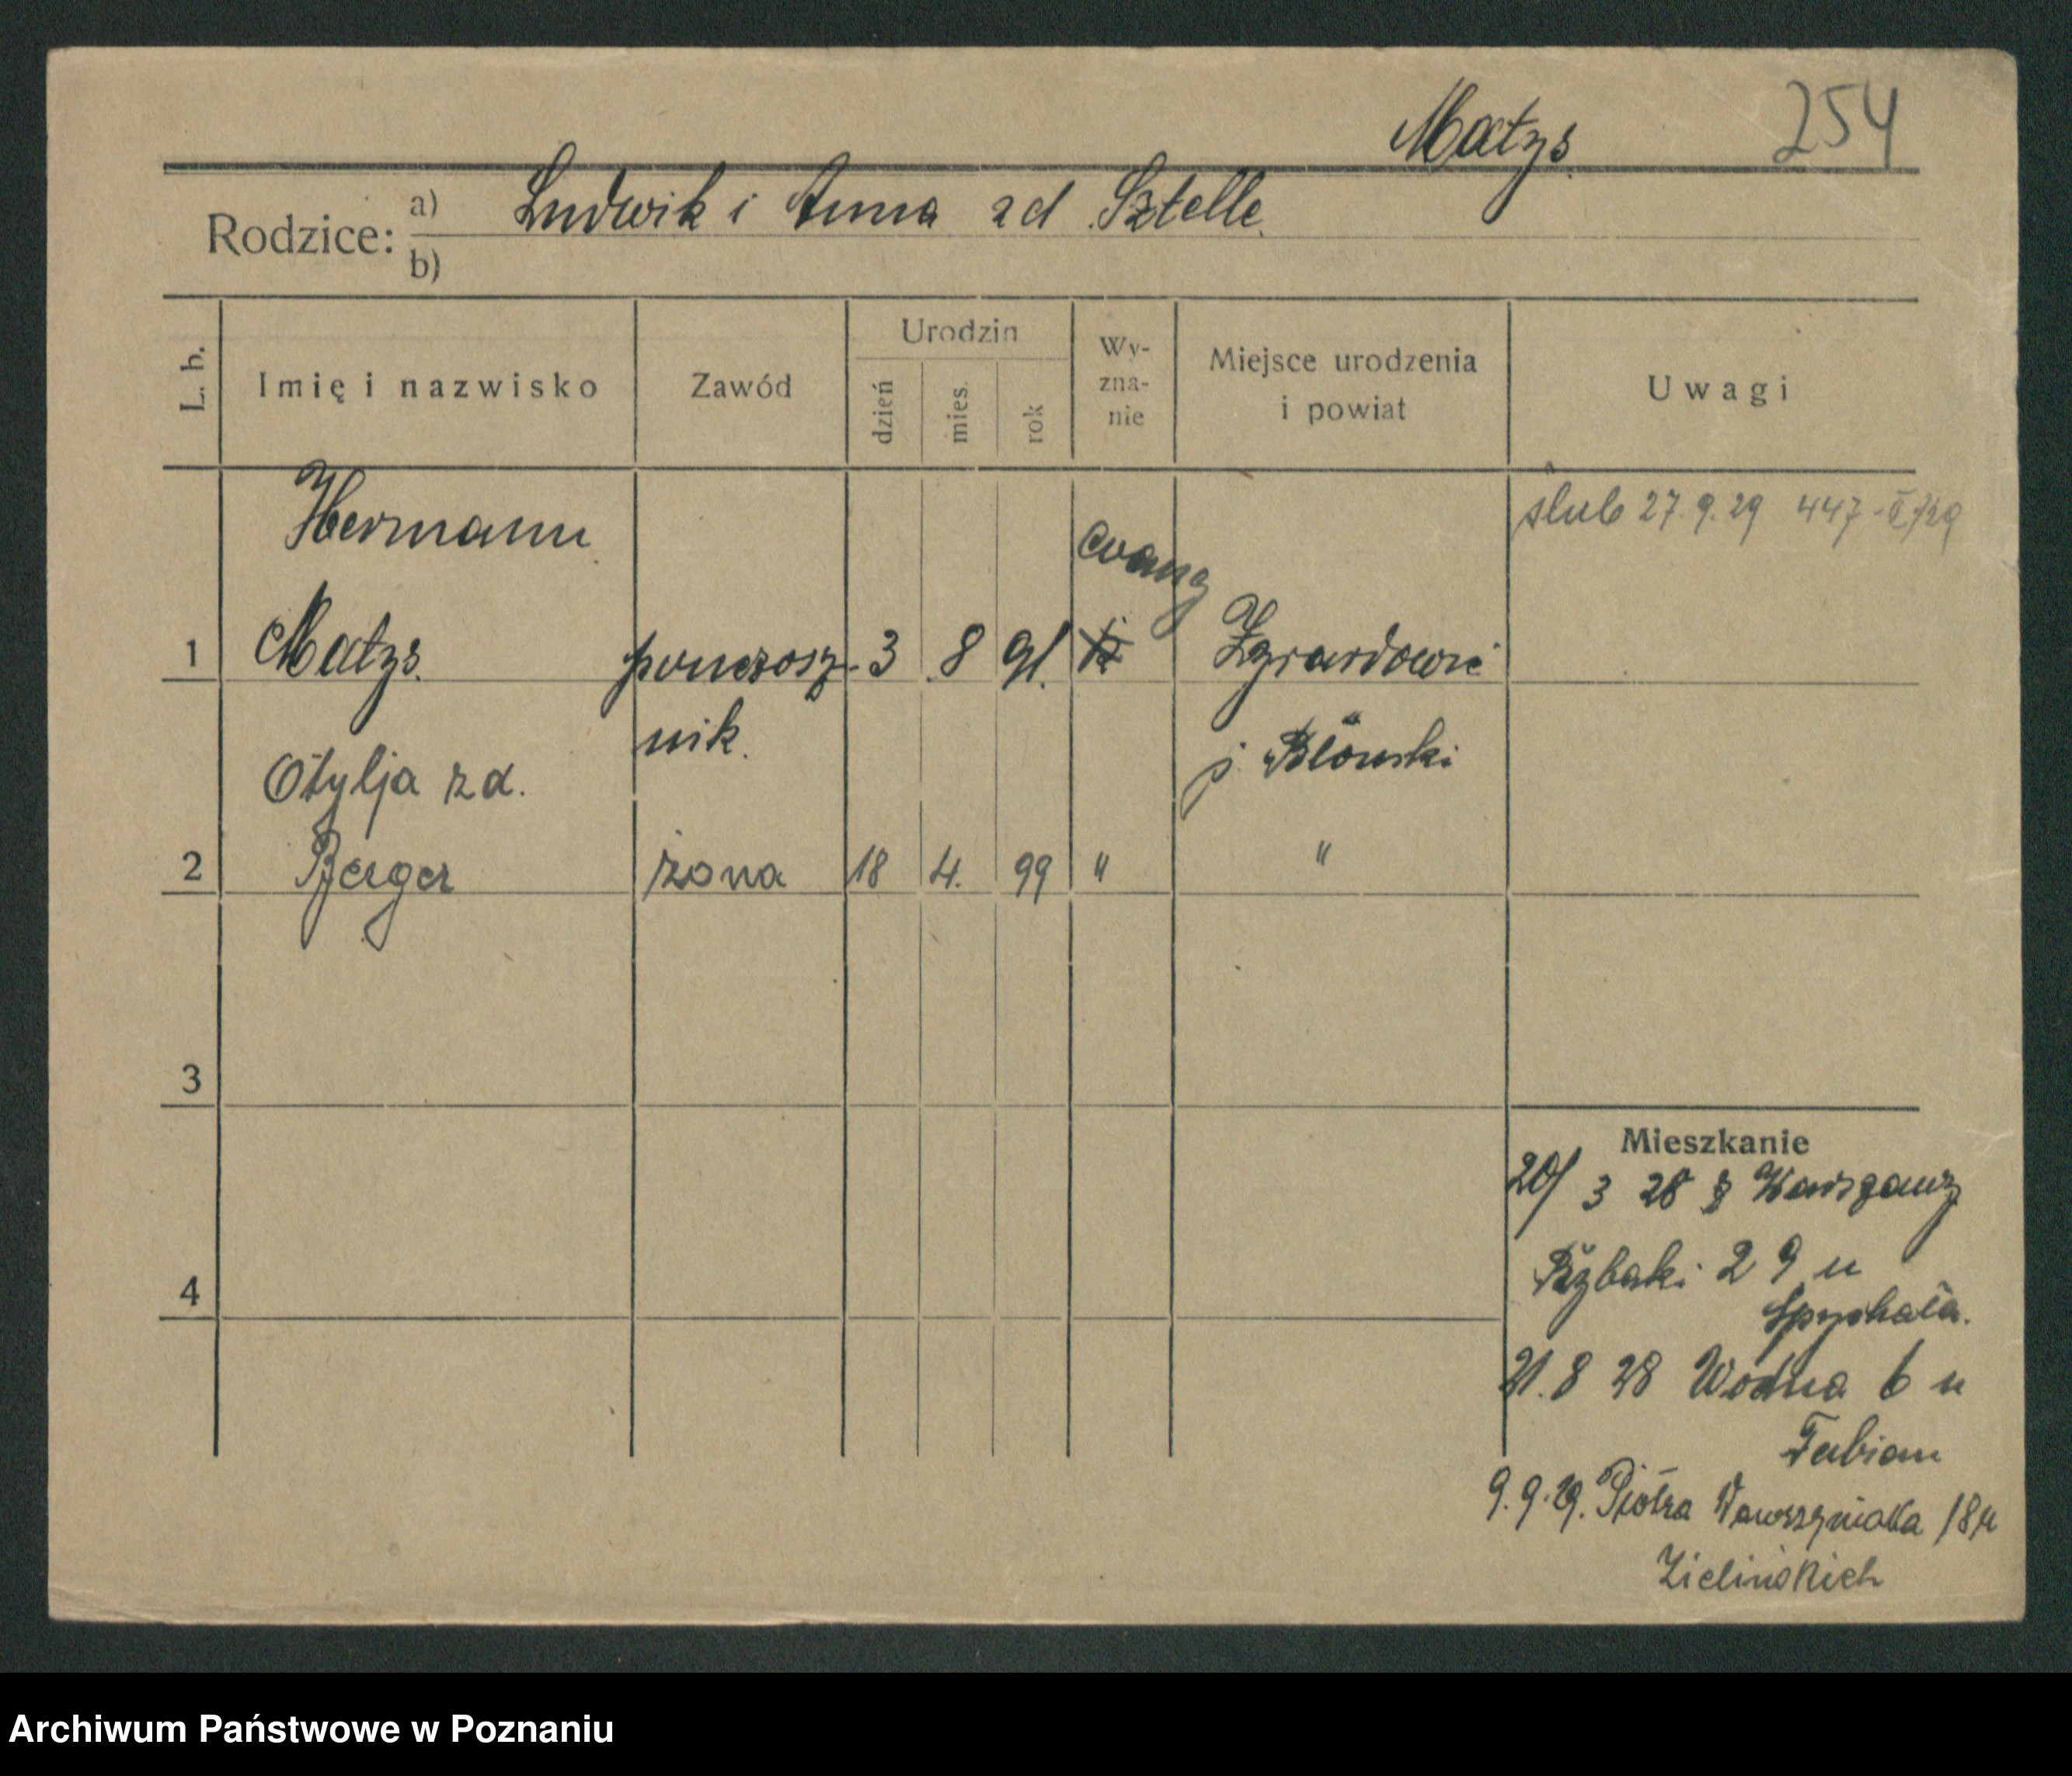 Matzs 254
Rodzice: a) Ludwik i Anna zd Sztelle
b)
L. b. Imię i nazwisko Zawód Urodzin dzień mies. rok Wyznanie Miejsce urodzenia i powiat Uwagi
Hermann ewang ślub 27.9.29 447-II/29
1 Matzs. ponczosz- 3 8 91. Żyrardowie
nik. p. Błonski
Otylja zd.
2 Berger żona 18 4. 99 " "
3
Mieszkanie
20/3 28 z Warszawy
4 Rybaki 29 u
Spychała.
21.8 28 Wodna 6 u
Fabian
9.9.29. Piotra Wawrzyniaka 18 u
Zielińskich
Archiwum Państwowe w Poznaniu